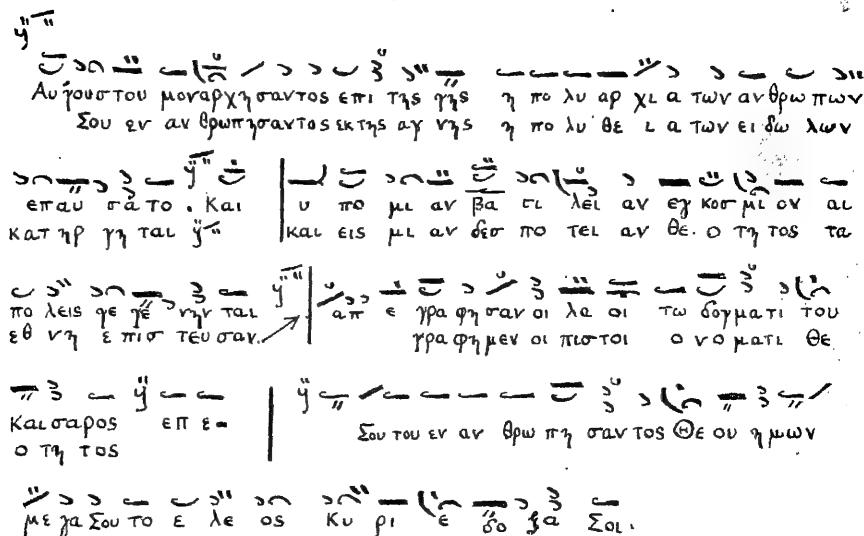 Αυγουστου μοναρχησαντος επι της γης η πο λυ αρ χι α των αν θρω πων
Σου εν αν θρωπησαντος εκ της αγ νης η πο λυ θε ι α των ει δω λων
επαυ σα το . Και υ πο μι αν βα σι λει αν εγ κοσ μι ον αι
κατ ηρ γη ται και εις μι αν δεσ πο τει αν θε. ο τη τος τα
πο λεις γε γε νην ται απ ε γρα φη σαν οι λα οι τω δογματι του
εθ νη ε πισ τευ σαν. γρα φη μεν οι πιστοι ο νο ματι θε
Και σαρος επ ε- Σου του εν αν θρω πη σαν τος Θε ου η μων
ο τη τος
με γα Σου το ε λε ος Κυ ρι ε δο ξα Σοι.